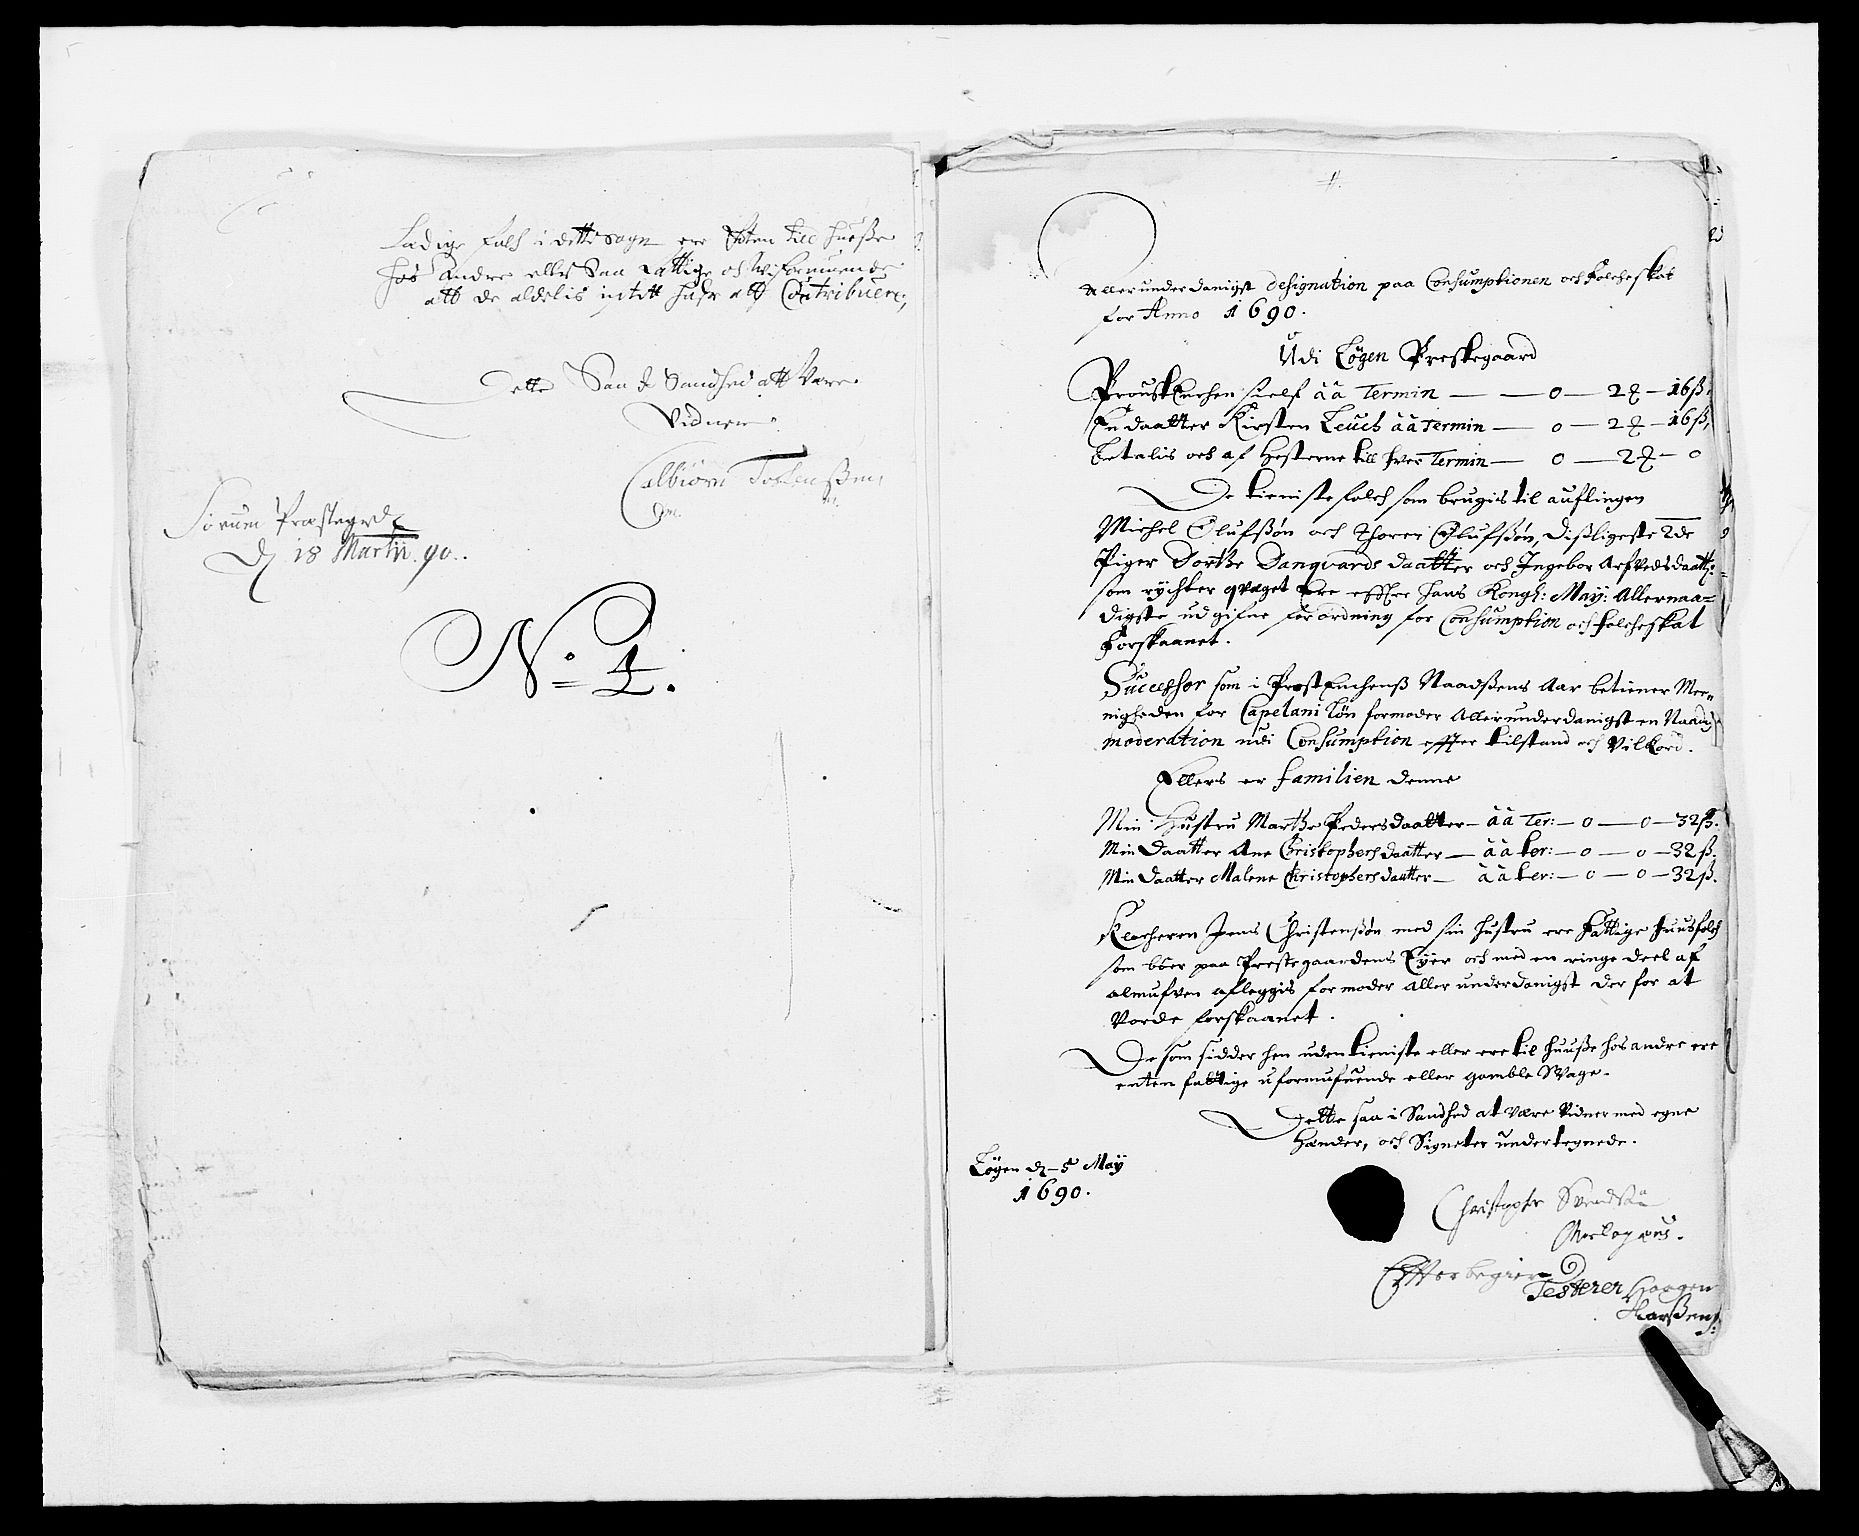 Ledige folck i dette sogn ere Enten till huusße
hos andre eller saa Fattige och Uformuende
att de aldelis intett hafr att Contribuere,
Dette Saa i Sandhed att Være
Vidner
Tostensßen
Sørum Præstegrd
d 18 Martii. 90.
No 1.
Allerunderdanigst designation paa Consumptionen och Folcheskat
for Anno 1690.
Udi Løgen Prestegaard
Proustenchen sielf àà Termin — — 0 — 2 — 16 ß,
En daatter Kirsten Leuch àà Termin — 0 — 2 — 16 ß,
betalis och af Hesterne till hver Termin — 0 — 2 — 0
De tieniste folch som brugis til auflingen
Michel Olufsßøn och Thorer Olufsßøn, disßligeste 2de
Piger Dorthe Danqvards daatter och Ingebor Arfvedsdaatt:
som rychter qvæget Ere effter hans Kongl: May: Allernaa=
digste udgifne forordning for Consumption och Folcheskat
Forskaanet.
Successor som i Prostenchenß Naadsßens Aar betiener Mee=
nigheden for Capelani Løn formoder Allerunderdanigst en Naadig
moderation udi Consumption effter tilstand och Vilkord.
Ellers er familien denne
Min Hustru Marthe Pedersdaatter — àà Ter: — 0 — 0 — 32 ß.
Min Daatter Ane Christophersdaatter — àà ter: — 0 — 0 — 32 ß.
Min Daatter Malene Christophersdaatter — àà ter: — 0 — 0 — 32 ß.
Klocheren Jens Christensøn med sin hustru ere Fattige huusfolch
som boer paa Prestegaardens Eyer och med en ringe deel af
almufven afleggis formoder Allerunderdanigst der for at
Vorde forskaanet.
De som sidder hen uden tieniste eller ere til huusße hos andre ere
enten fattige uformufuende eller gamble Svage.
Dette saa i Sandhed at være Vidner med egne
Hænder, och Signeter undertegnede.
Løgen d. 5 May
1690.
Christopher Svendsßøn
Effter begiering
Testerer Haagen
Larsßen